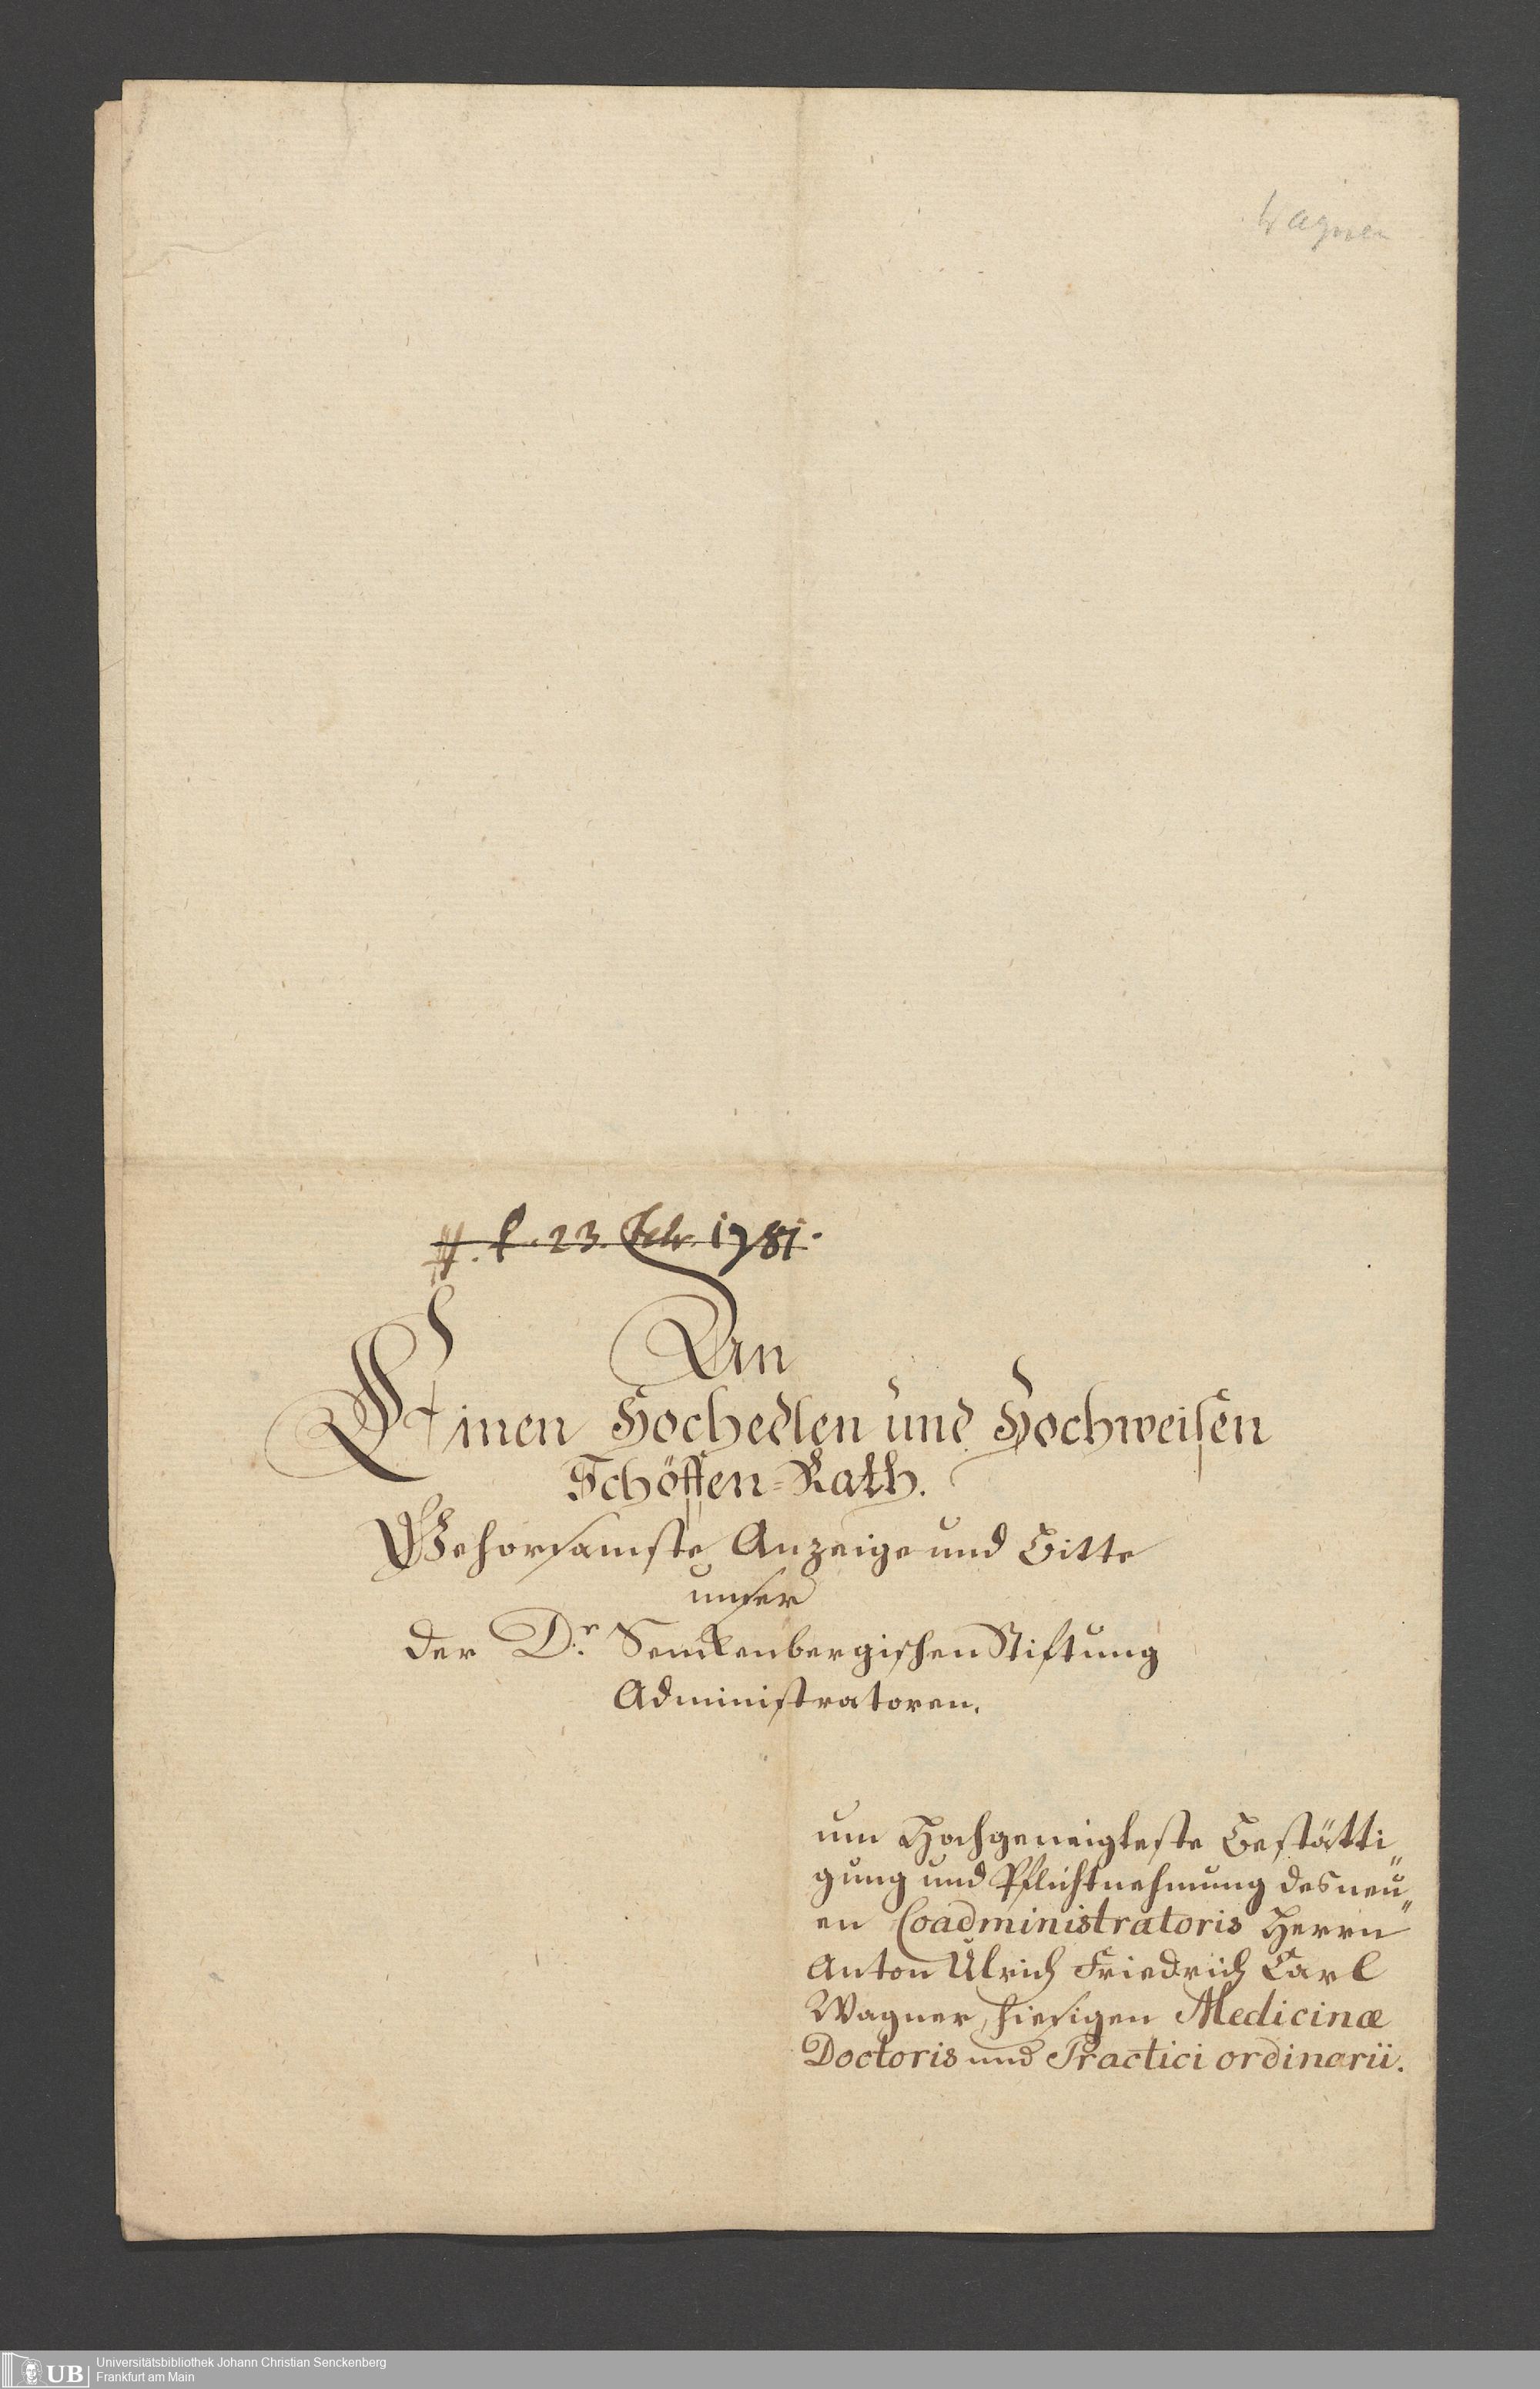 Wagner
23. Febr. 1781.
An
Einen Hochedlen und Hochweisen
Schöffen=Rath.
Gehorsamste Anzeige und Bitte
unser
der Dr. Senckenbergischen Stiftung
Administratoren.
um Hochgeneigteste Bestätti„
gung und Pflichtnehmung des neü„
en Coadministratoris Herrn
Anton Ulrich Friedrich Carl
Wagner, hiesigen Medicinæ
Doctoris und Practici ordinarii.
UB
Universitätsbibliothek Johann Christian Senckenberg
Frankfurt am Main